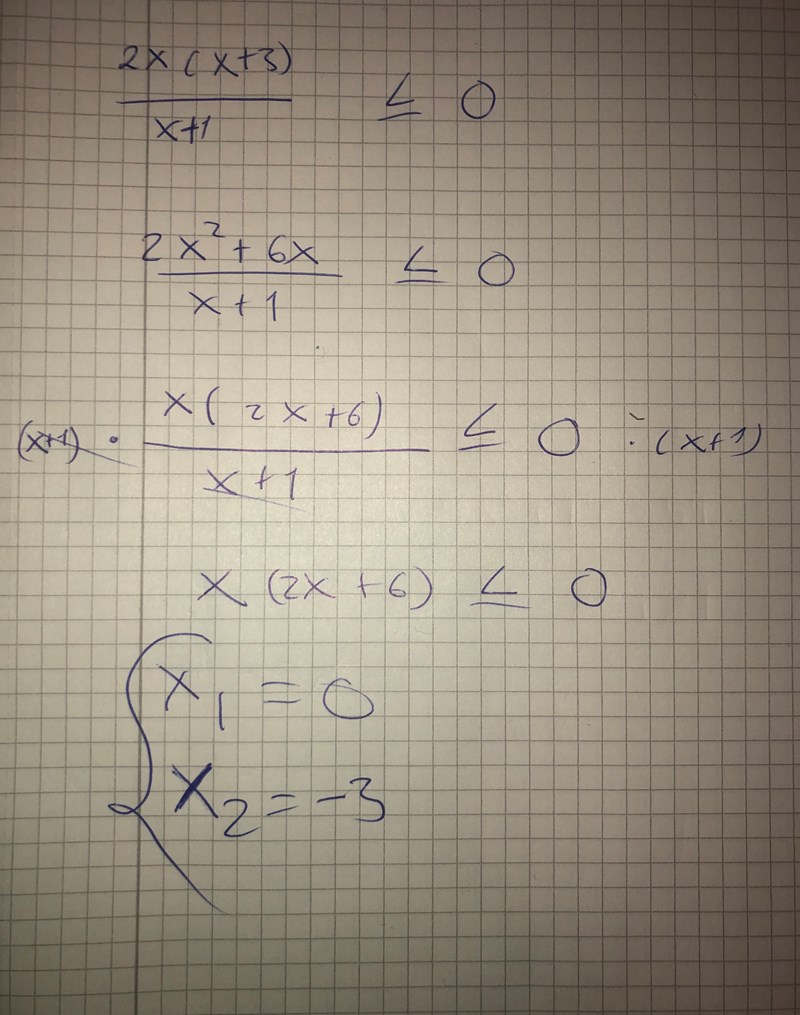 2x(x+3)/x+1 ≤ 0
2x²+6x/x+1 ≤ 0
(x+1) · x(2x+6)/x+1 ≤ 0 ÷(x+1)
x(2x+6) ≤ 0
x₁ = 0
x₂ = -3